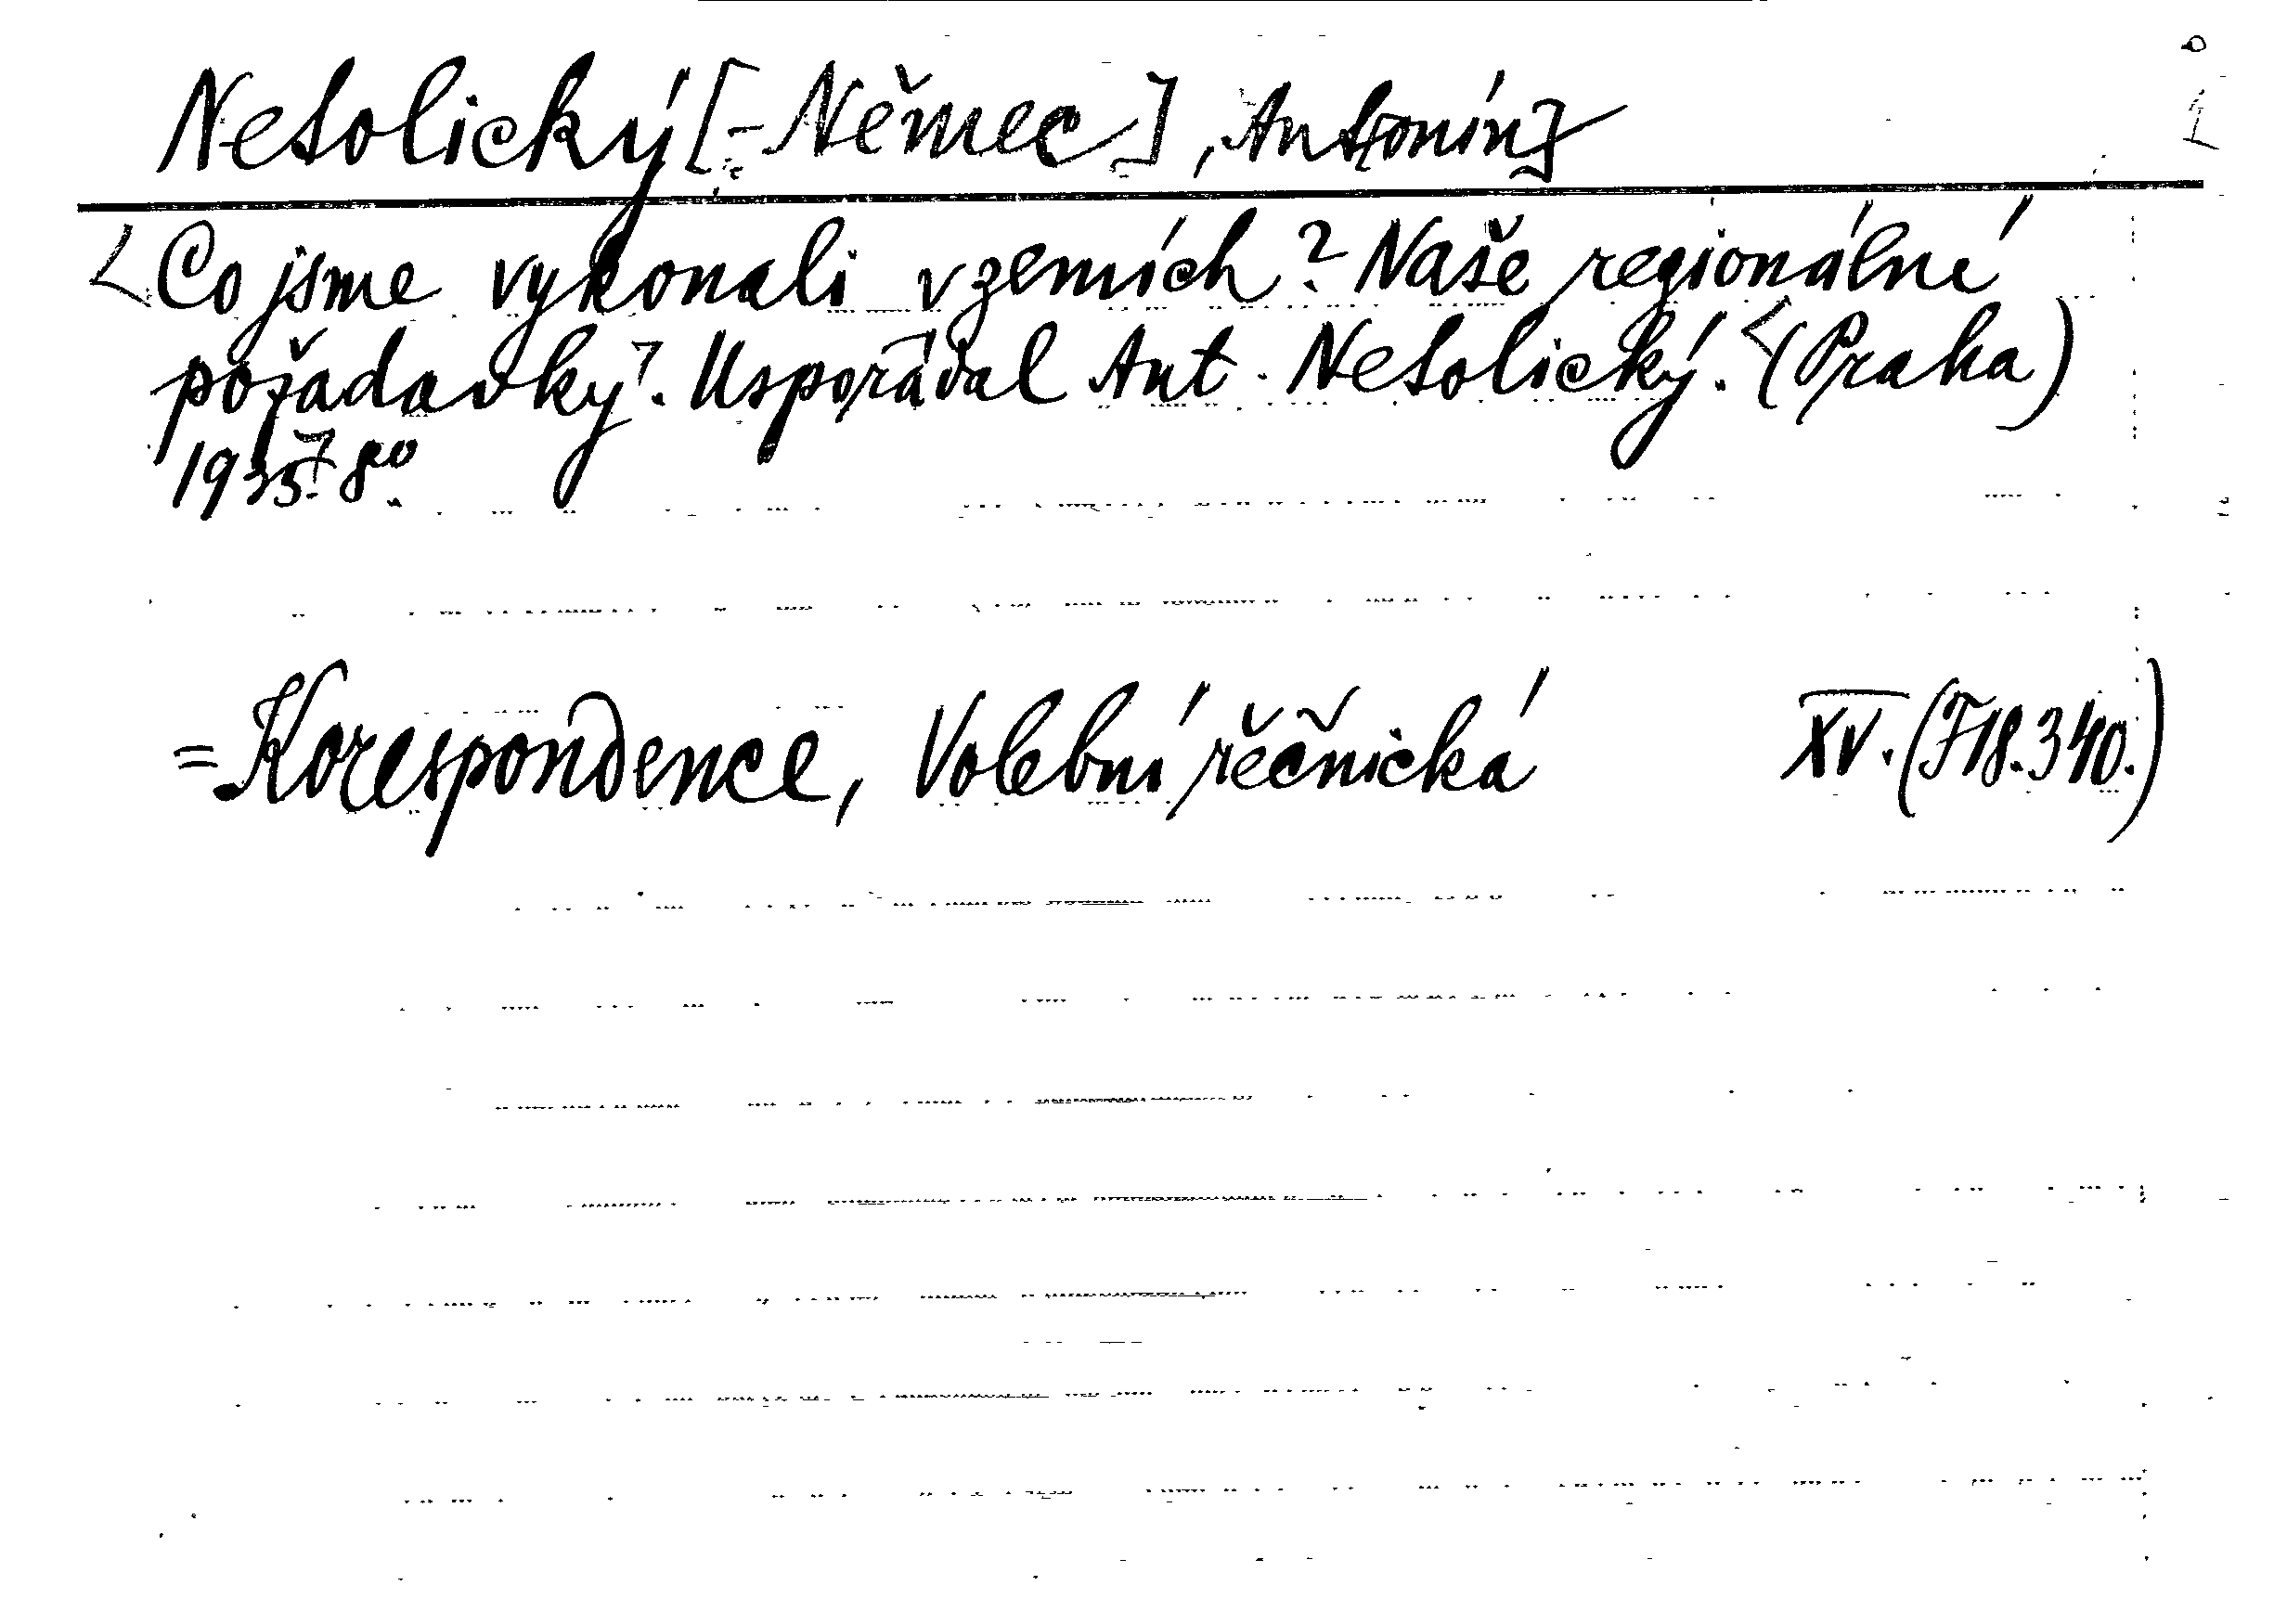 Netolický [-Němec], Ant[onín]
<Co jsme vykonali v zemích? Naše regionální
požadavky. Uspořádal Ant. Netolický. (Praha)
1935. 8°.
= Korespondence, Volební řečnická XV. (F18.340.)